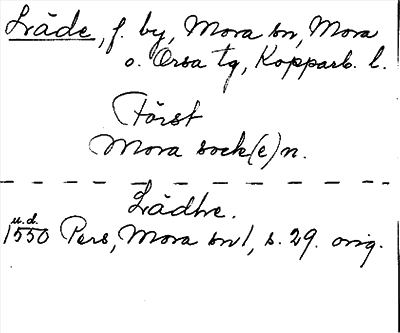 Lräde, f. by, Mora sn, Mora
o. Orsa tg, Kopparb. l.
Först
Mora sock(e)n.
Lrädhe.
u.d.
1550 Pers, Mora sn 1, s. 29. orig.